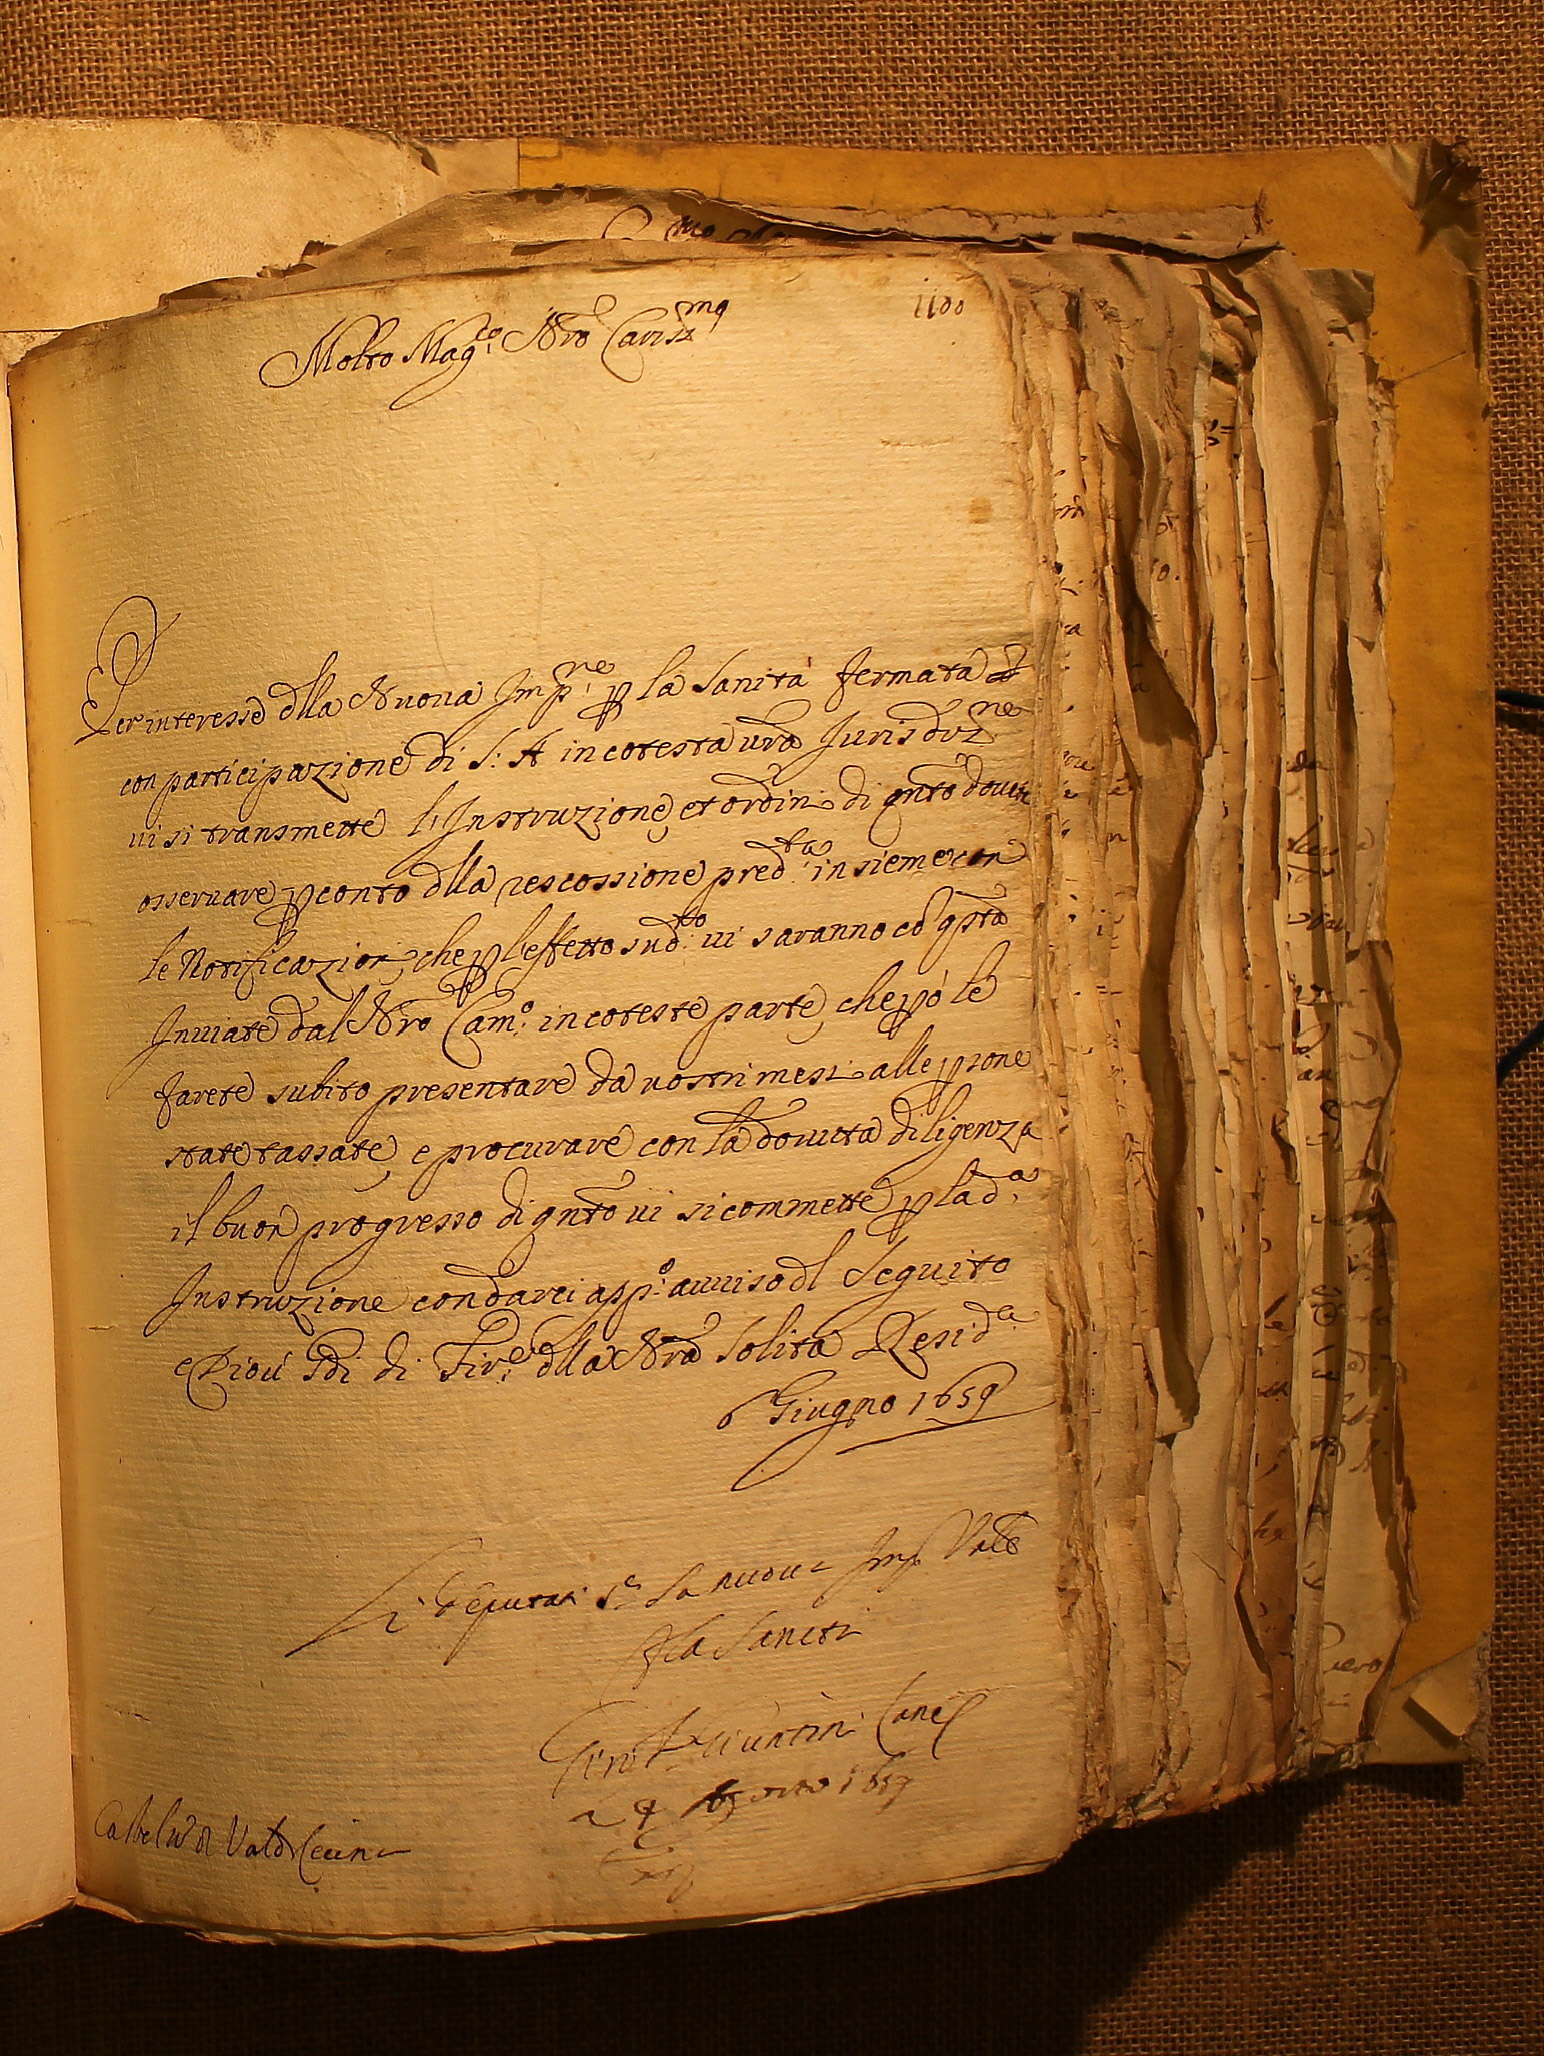 1100
Molto Mag.co Nro Cariss.mo
Per interesse dlla Nuova Imp.ne p la Sanità fermata
con participazione di S: A in cotesta vrã Jurisdiz.ne
vi si transmette l'Instruzione, et ordini di qnto dovete
osservare p conto dlla rescossione pred.ta insieme con
le Notificazioni, che p l'effetto sud.to vi saranno cõ qsta
Inviate dal Nro Cam.o in coteste parte, che però le
farete subito presentare da vostri mesi alle psone
state tassate, e procurare con la dovuta diligenza
il buon progresso di qnto vi si commette p la d.a
Instruzione con darci app.o avviso dl Seguito
e Dio vi Gdi di Fir.e dlla Nrã Solita Resid.a
6 Giugno 1659
Li Deputati s.a la nuova Imp. Vale
dla Sanità
Giuntini Canc
a 9 1659
Val di Cecina